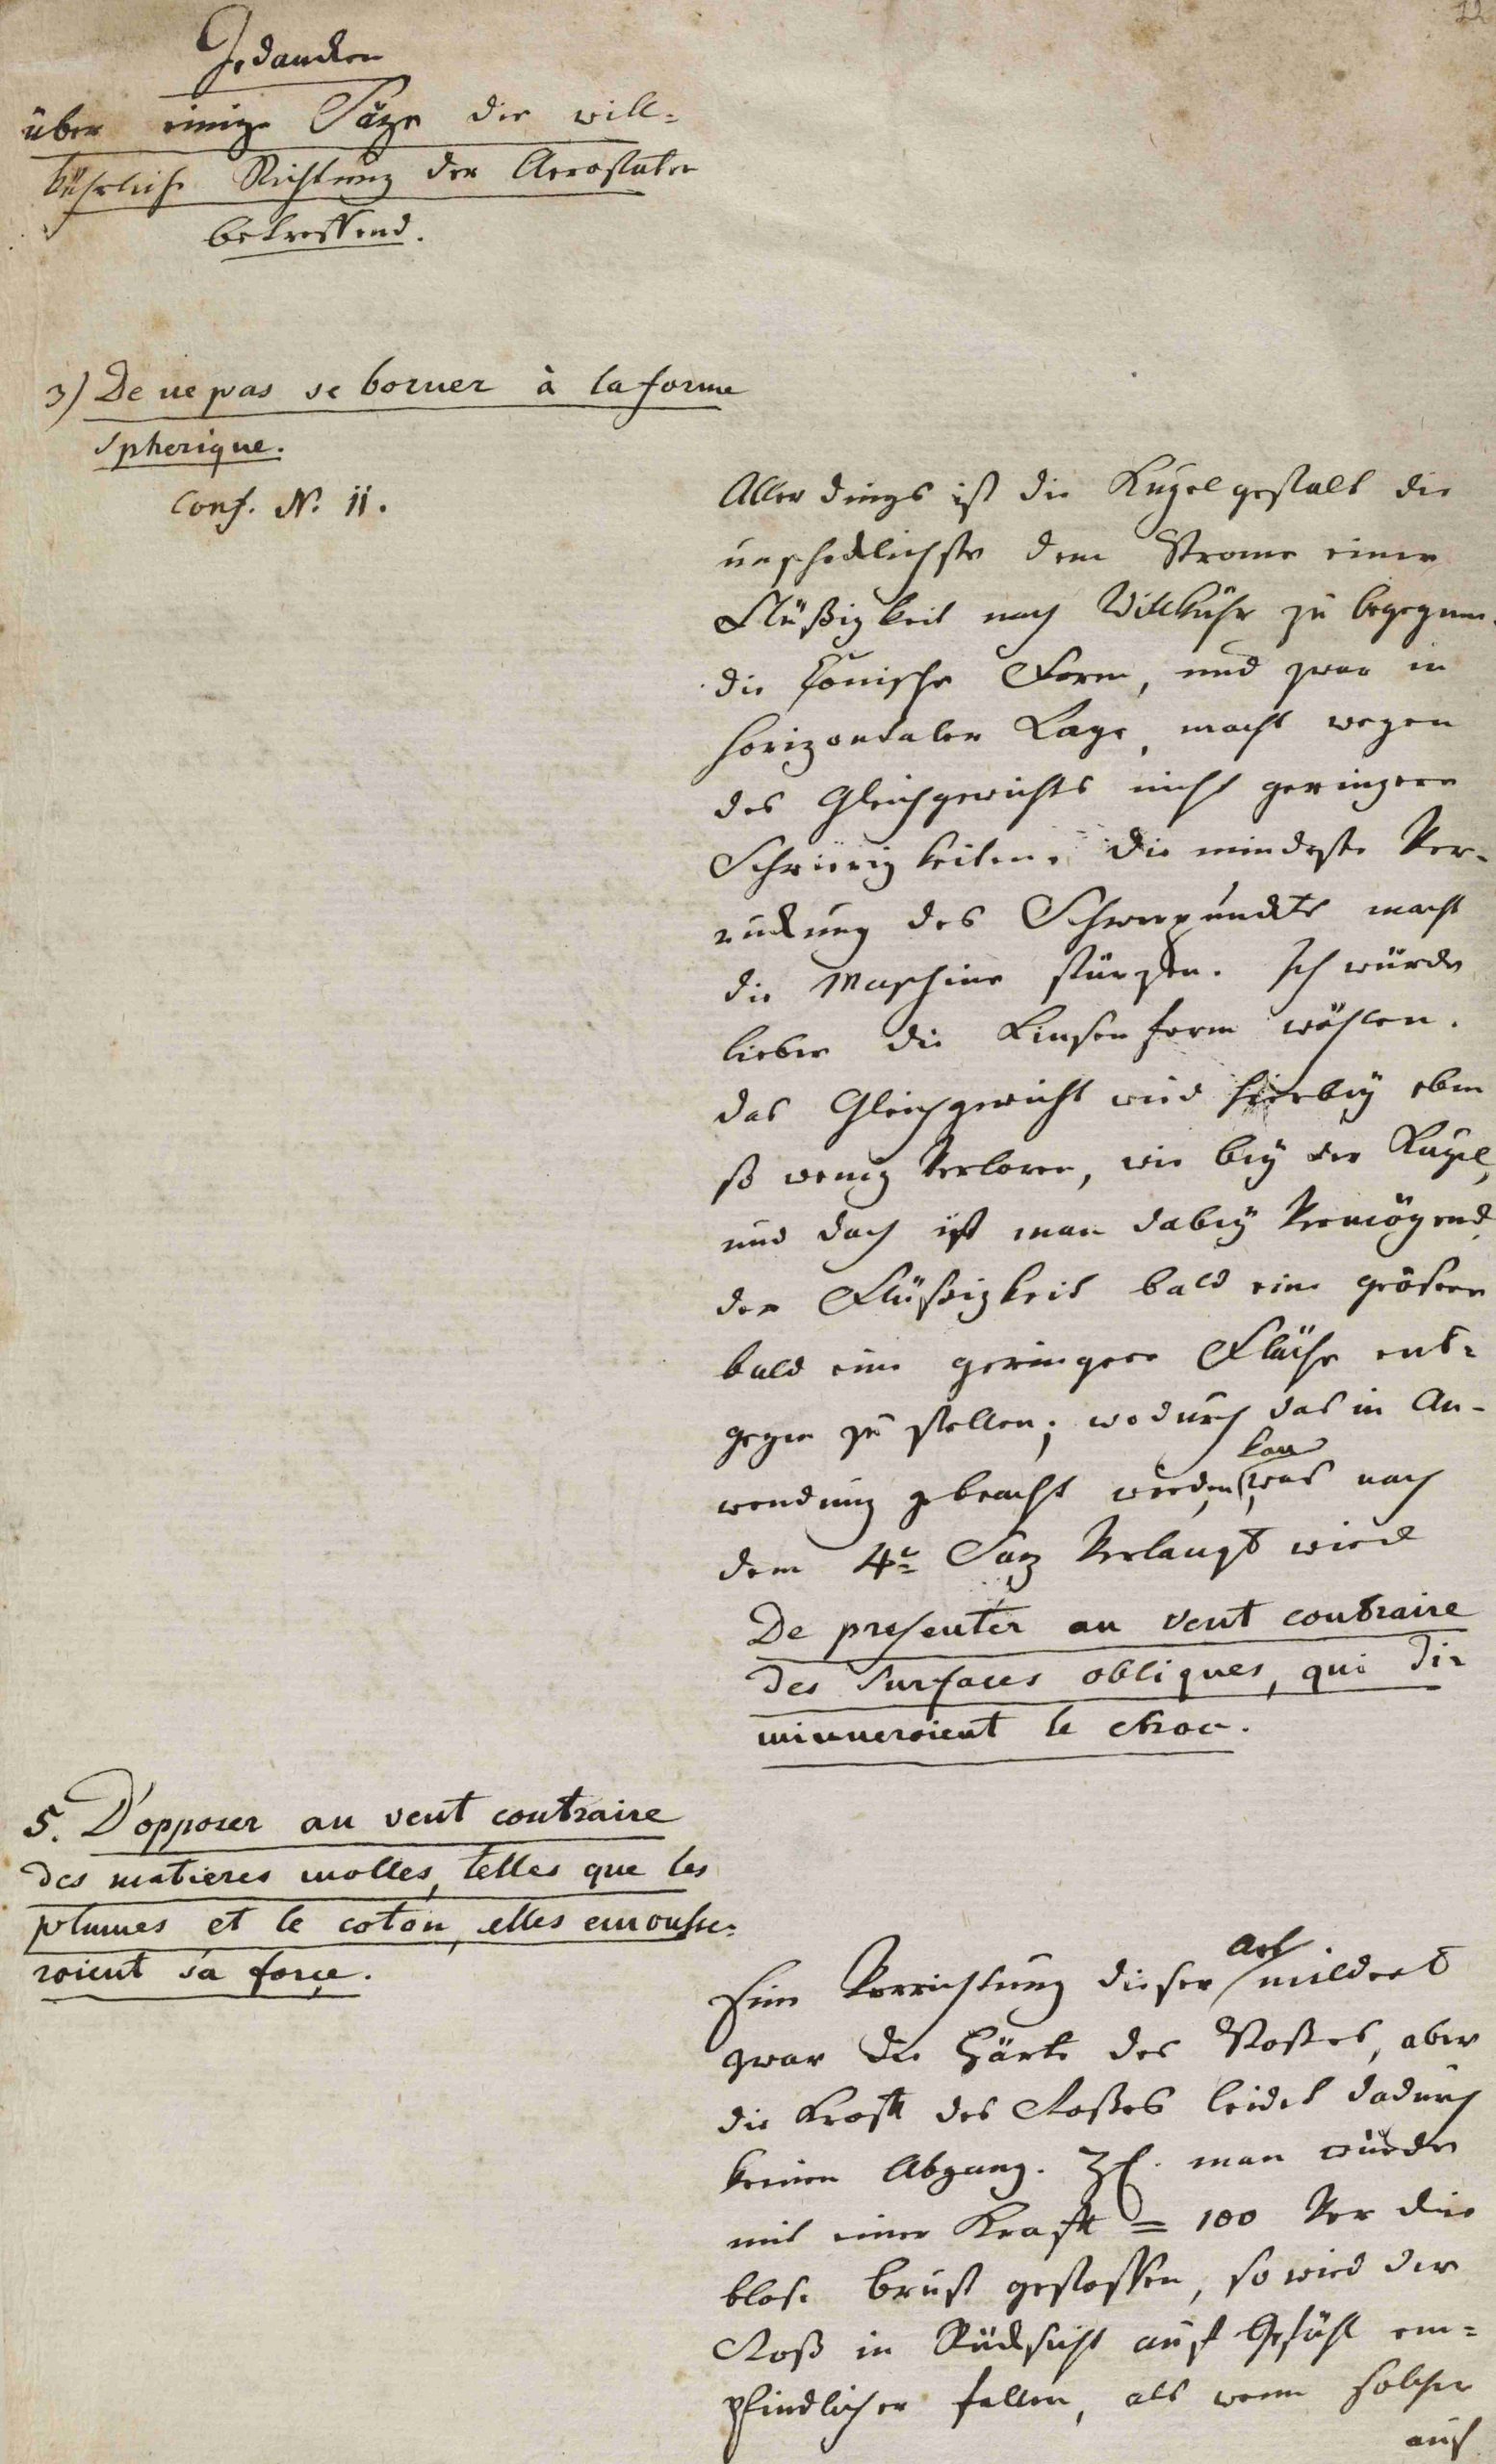 12
Gedancken
über einige Säze die will=
kührliche Richtung der Aerostaten
betreffend.
3) De ne pas se borner à la forme
spherique.
Conf. N. 11.
Aller dings ist die Kugelgestalt die
unschicklichste dem Strome einer
Flüßigkeit nach Willkühr zu begegnen.
die konische Form, und zwar in
horizontaler Lage, macht wegen
des Gleichgewichts nicht geringere
Schwierigkeiten. Die mindeste Ver-
rückung des Schwerpunckts macht
die Maschine stürzen. Ich würde
lieber die Linsenform wählen.
das Gleichgewicht wird hierbeÿ eben
so wenig verloren, wie beÿ der Kugel,
und doch ist man dabeÿ vermögend
der Flüßigkeit bald eine grösere
bald eine geringere Fläche ent-
gegen zu stellen; wodurch das in An-
kan
wendung gebracht werden, was nach
dem 4n Saz verlangt wird
De presenter au vent contraire
des Surfaces obliques, qui di-
minueroient le choc.
5. D'opposer au vent contraire
des matieres molles, telles que les
plumes et le coton, elles emousse=
roient sa force.
Art
Eine Vorrichtung dieser mildert
zwar die Härte des Stoßes, aber
die Kraft des Stoßes leidet dadurch
keinen Abgang. ZE. man würde
mit einer Kraft = 100 vor die
blose Brust gestossen, so wird der
Stoß in Rücksicht aufs Gefühl em=
pfindlicher fallen, als wenn solcher
auf